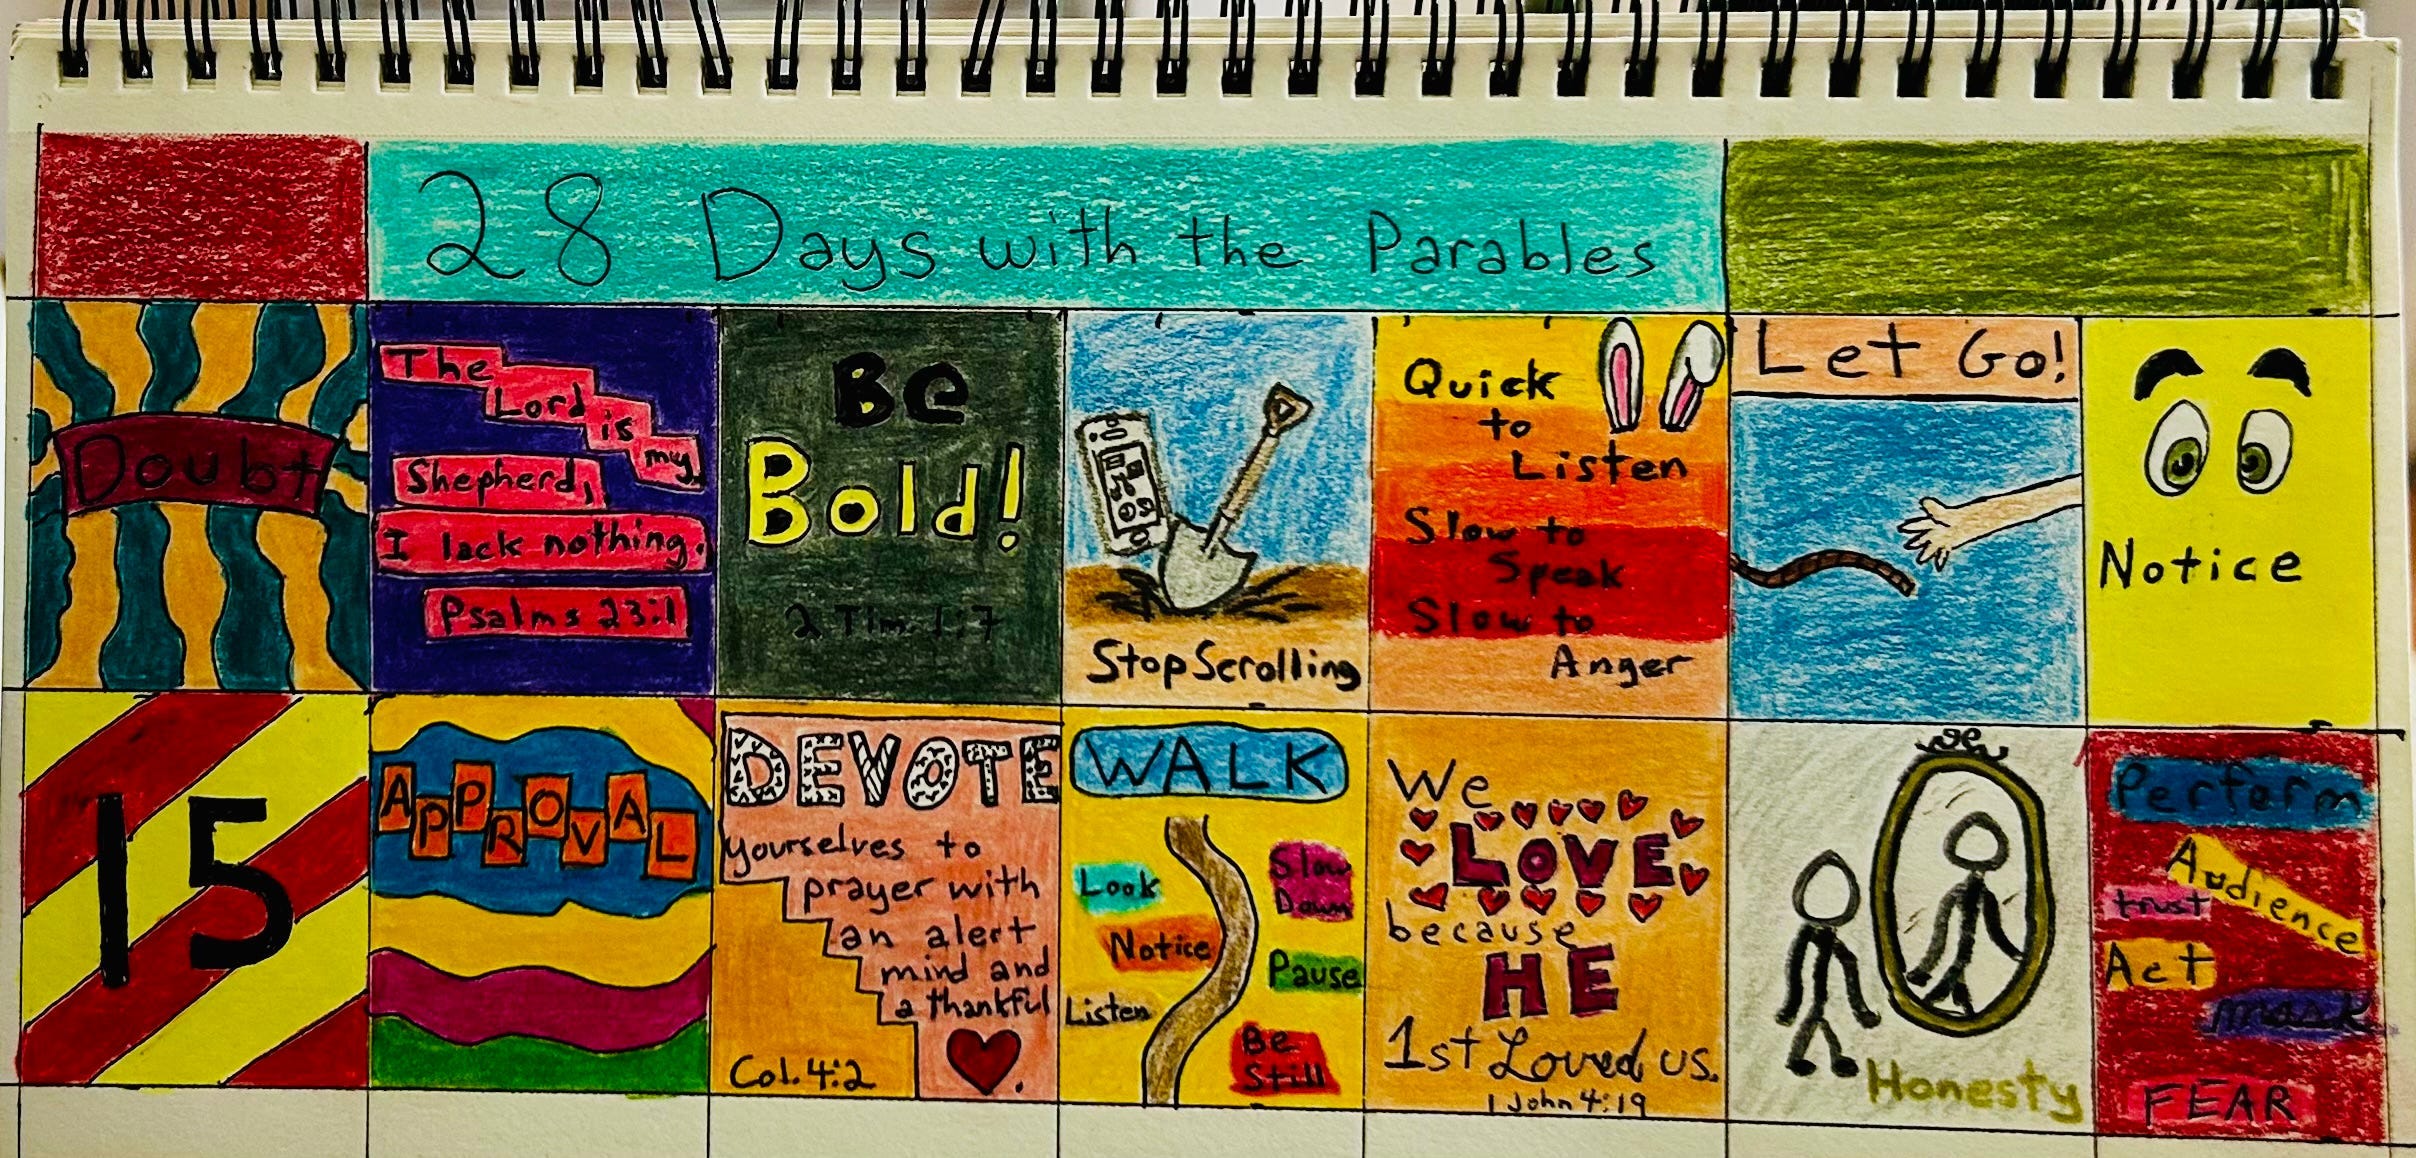 28 Days with the Parables
Doubt
The
Lord
is
my
Shepherd,
I lack nothing.
Psalms 23:1
Be
Bold!
2 Tim. 1:7
Stop Scrolling
Quick
to
Listen
Slow to
Speak
Slow to
Anger
Let Go!
Notice
15
APPROVAL
DEVOTE
yourselves to
prayer with
an alert
mind and
a thankful
Col. 4:2
WALK
Look
Slow
Down
Notice
Pause
Listen
Be
Still
We
LOVE
because
HE
1st Loved us.
1 John 4:19
Honesty
Perform
Audience
trust
Act
mask
FEAR